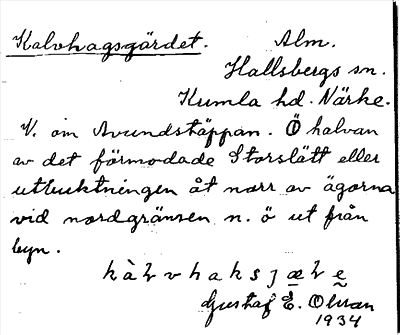 Kalvhagsgärdet. Alm.
Hallsbergs sn.
Kumla hd. Närke.
V. om Avundstäppan. Ö halvan
av det förmodade Storslätt eller
utbuktningen åt norr av ägorna
vid nordgränsen n. ö ut från
byn.
Gustaf E. Olsson
1934